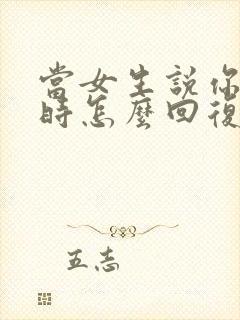 當女生說你
時怎麼回復
五志